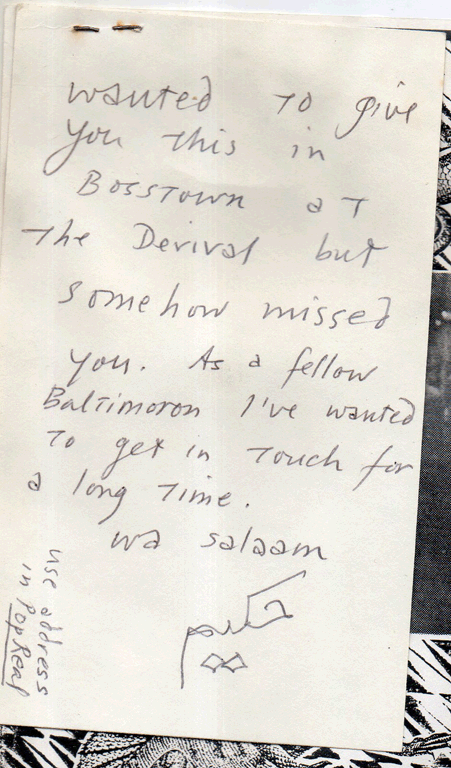 wanted to give
you this in
Bosstown at
the Derival but
somehow missed
you. As a fellow
Baltimoron I've wanted
to get in touch for
a long time.
wa salaam
حكيم
use address
in PopReal